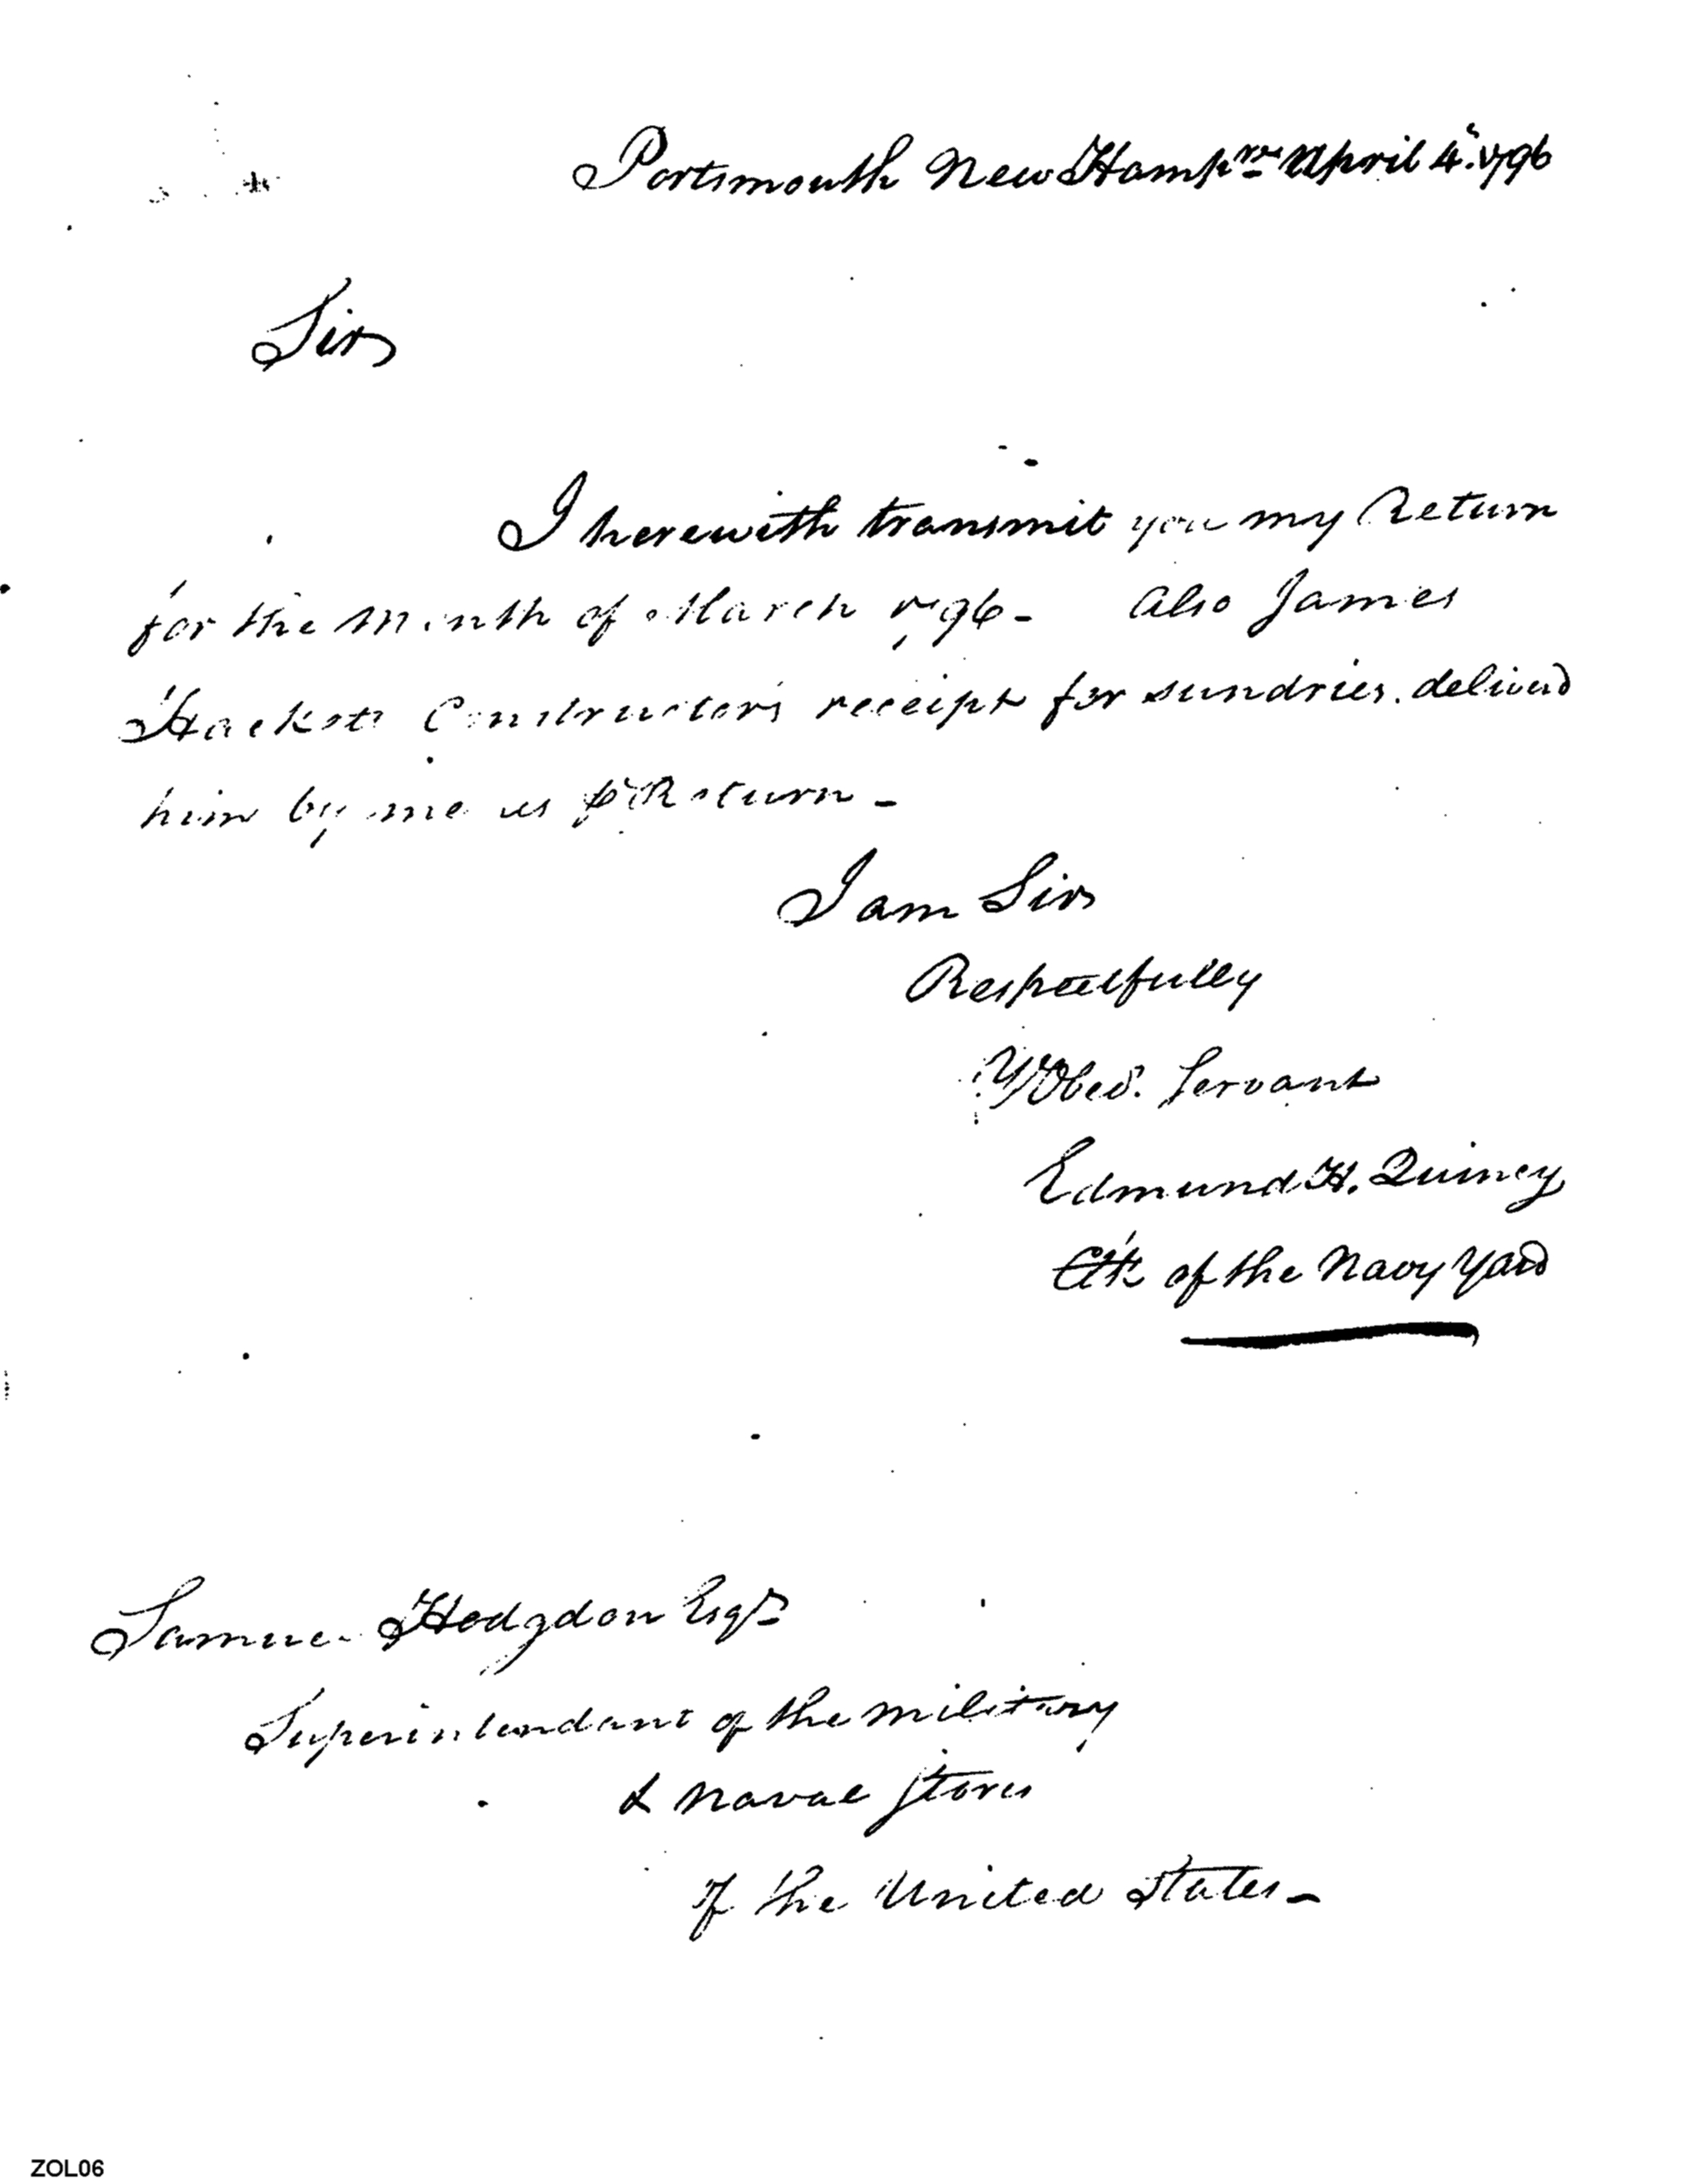 Portsmouth New Hampre April 4th 1796
Sir
I herewith transmit you my Return
for the Month of March 1796 - Also James
Hacketts Constructors receipt for sundries deliverd
him by me as pr Return -
I am Sir
Respectfully
Yr Obed. Servant
Edmund H. Quincy
Clk of the Navy Yard
Samuel Hodgdon Esqr
Superintendant of the military
& Naval Stores
of the United States -
ZOL06